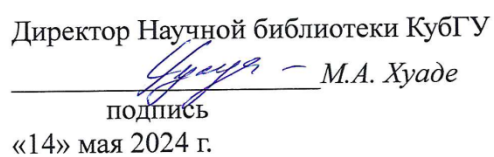 Директор Научной библиотеки КубГУ
М.А. Хуаде
подпись
«14» мая 2024 г.